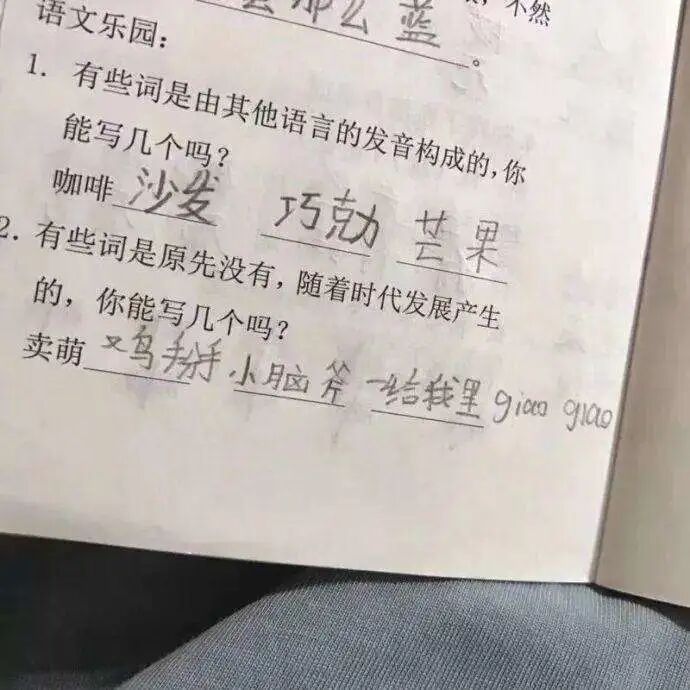 么那么蓝
不然
。
语文乐园：
1. 有些词是由其他语言的发音构成的，你
能写几个吗？
咖啡 沙发 巧克力 芒果
2. 有些词是原先没有，随着时代发展产生
的，你能写几个吗？
卖萌 鸡掰 小脑斧 一给我里giao giao